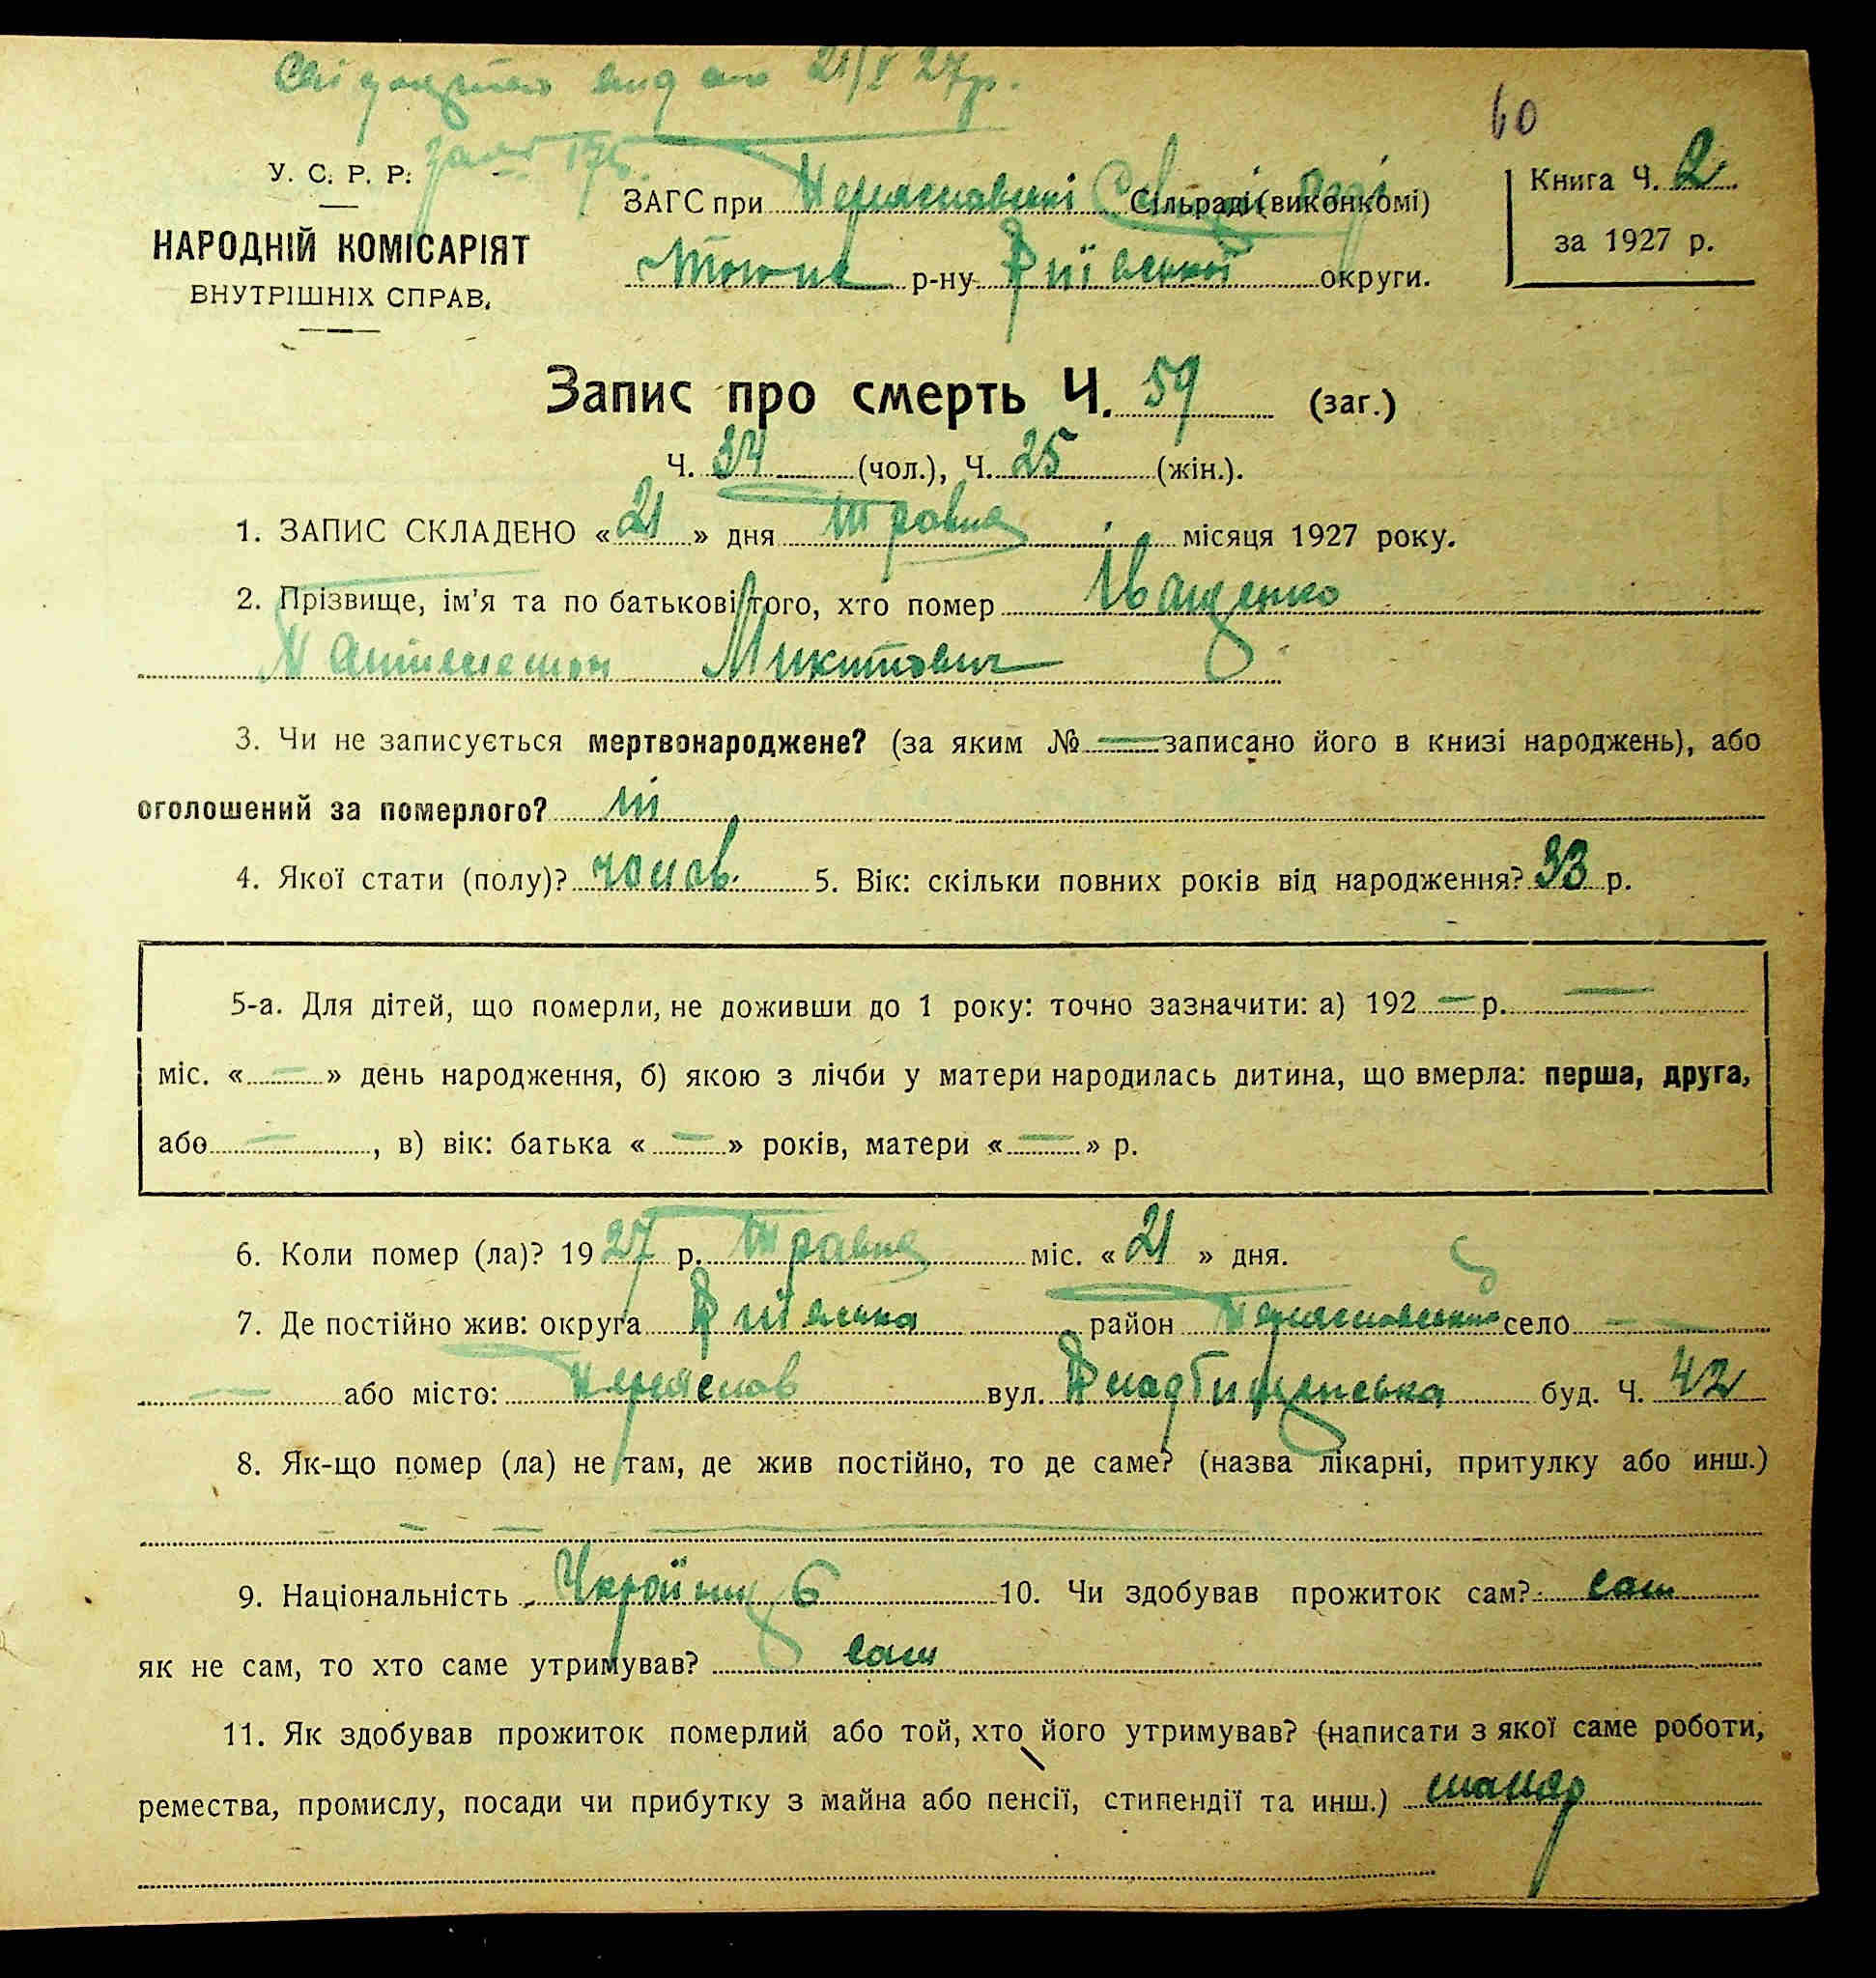 Свідоцтво видано 21/V 27р.
60
У. С. Р. Р.
ЗАГС при Переяславській Сільраді (виконкомі)
Книга Ч. 2
НАРОДНІЙ КОМІСАРІЯТ
ВНУТРІШНІХ СПРАВ.
р-ну Київської округи.
за 1927 р.
Запис про смерть Ч. 59 (заг.)
Ч. 34 (чол.), Ч. 25 (жін.).
1. ЗАПИС СКЛАДЕНО «21» дня Травня місяця 1927 року.
2. Прізвище, ім'я та по батькові того, хто помер Іващенко
Пантилемон Микитович
3. Чи не записується мертвонароджене? (за яким № — записано його в книзі народжень), або
оголошений за померлого? ні
4. Якої стати (полу)? чолов. 5. Вік: скільки повних років від народження? 33 р.
5-а. Для дітей, що померли, не доживши до 1 року: точно зазначити: а) 192 — р. —
міс. « — » день народження, б) якою з лічби у матери народилась дитина, що вмерла: перша, друга,
або —, в) вік: батька « — » років, матери « — » р.
6. Коли помер (ла)? 1927 р. Травня міс. «21» дня.
7. Де постійно жив: округа Київська район Переяславський село —
— або місто: Переяслав вул. Кладбищенська буд. Ч. 42
8. Як-що помер (ла) не там, де жив постійно, то де саме? (назва лікарні, притулку або инш.)
— — — —
9. Національність Україинець 10. Чи здобував прожиток сам? сам
як не сам, то хто саме утримував? сам
11. Як здобував прожиток померлий або той, хто його утримував? (написати з якої саме роботи,
ремества, промислу, посади чи прибутку з майна або пенсії, стипендії та инш.) маляр